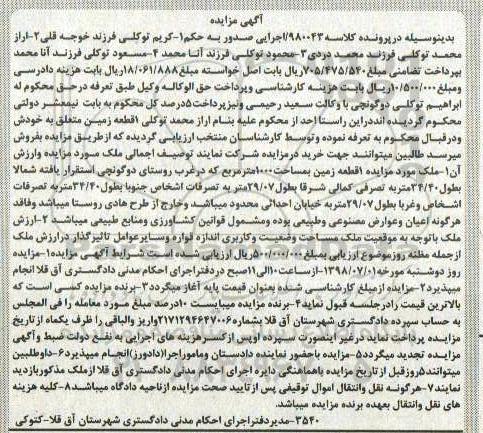 آگهی مزایده
بدینوسیله درپرونده کلاسه ۹۸۰۰۴۳/اجرایی صدور به حکم۱-کریم توکلی فرزند خوجه قلی۲-اراز
محمد توکلی فرزند محمد دردی۳-محمود توکلی فرزند آنا محمد ۴-مسعود توکلی فرزند آنا محمد
بپرداخت تضامنی مبلغ۷۰۵/۴۷۵/۵۴۰ریال بابت اصل خواسته مبلغ۱۸/۰۶۱/۸۸۸ریال بابت هزینه دادرسی
ومبلغ۱۰/۵۰۰/۰۰۰ریال بابت هزینه کارشناسی وپرداخت حق الوکاله وکیل طبق تعرفه درحق محکوم له
ابراهیم توکلی دوگونچی با وکالت سعید رحیمی ونیزپرداخت۵درصد کل محکوم به بابت نیمعشر دولتی
محکوم گردیده اند دراین راستا احد از محکوم علیه بنام اراز محمد توکلی ۱قطعه زمین متعلق به خودش
ودرقبال محکوم به تعرفه نموده وتوسط کارشناسان منتخب ارزیابی گردیده که ازطریق مزایده بفروش
میرسد طالبین میتوانند جهت خرید درمزایده شرکت نمایند توصیف اجمالی ملک مورد مزایده وارزش
آن۱-ملک مورد مزایده ۱قطعه زمین بمساحت۱۰۰۰مترمربع که درغرب روستای دوگونچی استقرار یافته شمالا
بطول۳۴/۴۰متربه تصرفی کمالی شرقا بطول۲۹/۰۷متربه تصرفات اشخاص جنوبا بطول۳۴/۴۰متربه تصرفات
اشخاص وغربا بطول۲۹/۰۷متربه خیابان احداثی محدود میباشد وخارج از طرح هادی روستا میباشد وفاقد
هرگونه اعیان وعوارض مصنوعی وطبیعی بوده ومشمول قوانین کشاورزی ومنابع طبیعی میباشد ۲-ارزش
ملک باتوجه به موقعیت ملک مساحت وضعیت وکاربری اندازه قواره وسایرعوامل تاثیرگذار درارزش ملک
ازجمله مظنه روزموضوع ارزیابی بمبلغ۵۰۰/۰۰۰/۰۰۰ریال ارزیابی شده است شرایط آگهی مزایده۱-مزایده
روز دوشنبه مورخه۱۳۹۸/۰۷/۰۱ازساعت۱۰الی۱۱صبح دردفتراجرای احکام مدنی دادگستری آق قلا انجام
میپذیرد۲-مزایده ازمبلغ کارشناسی شده بعنوان قیمت پایه آغاز میگردد۳-برنده مزایده کسی است که
بالاترین قیمت رادرجلسه قبول نماید۴-برنده مزایده میبایست ۱۰درصد مبلغ مورد معامله را فی المجلس
به حساب سپرده دادگستری شهرستان آق قلا بشماره۲۱۷۱۲۹۴۶۴۷۰۰۶واریز والباقی را ظرف یکماه از تاریخ
مزایده پرداخت نماید درغیر اینصورت سپرده اوپس ازکسرهزینه های اجرایی به نفع دولت ضبط و آگهی
مزایده تجدید میگردد۵-مزایده باحضور نماینده دادستان وماموراجرا(دادورز)انجام میپذیرد۶-داوطلبین
میتوانند۵روزقبل از تاریخ مزایده باهماهنگی دایره اجرای احکام مدنی دادگستری آق قلا ازملک مذکوربازدید
نمایند۷-هرگونه نقل وانتقال اموال توقیفی پس ازتایید صحت مزایده ازناحیه دادگاه میباشد۸-کلیه هزینه
های نقل وانتقال بعهده برنده مزایده میباشد.
۳۵۴۰-مدیردفتراجرای احکام مدنی دادگستری شهرستان آق قلا-کتوکی